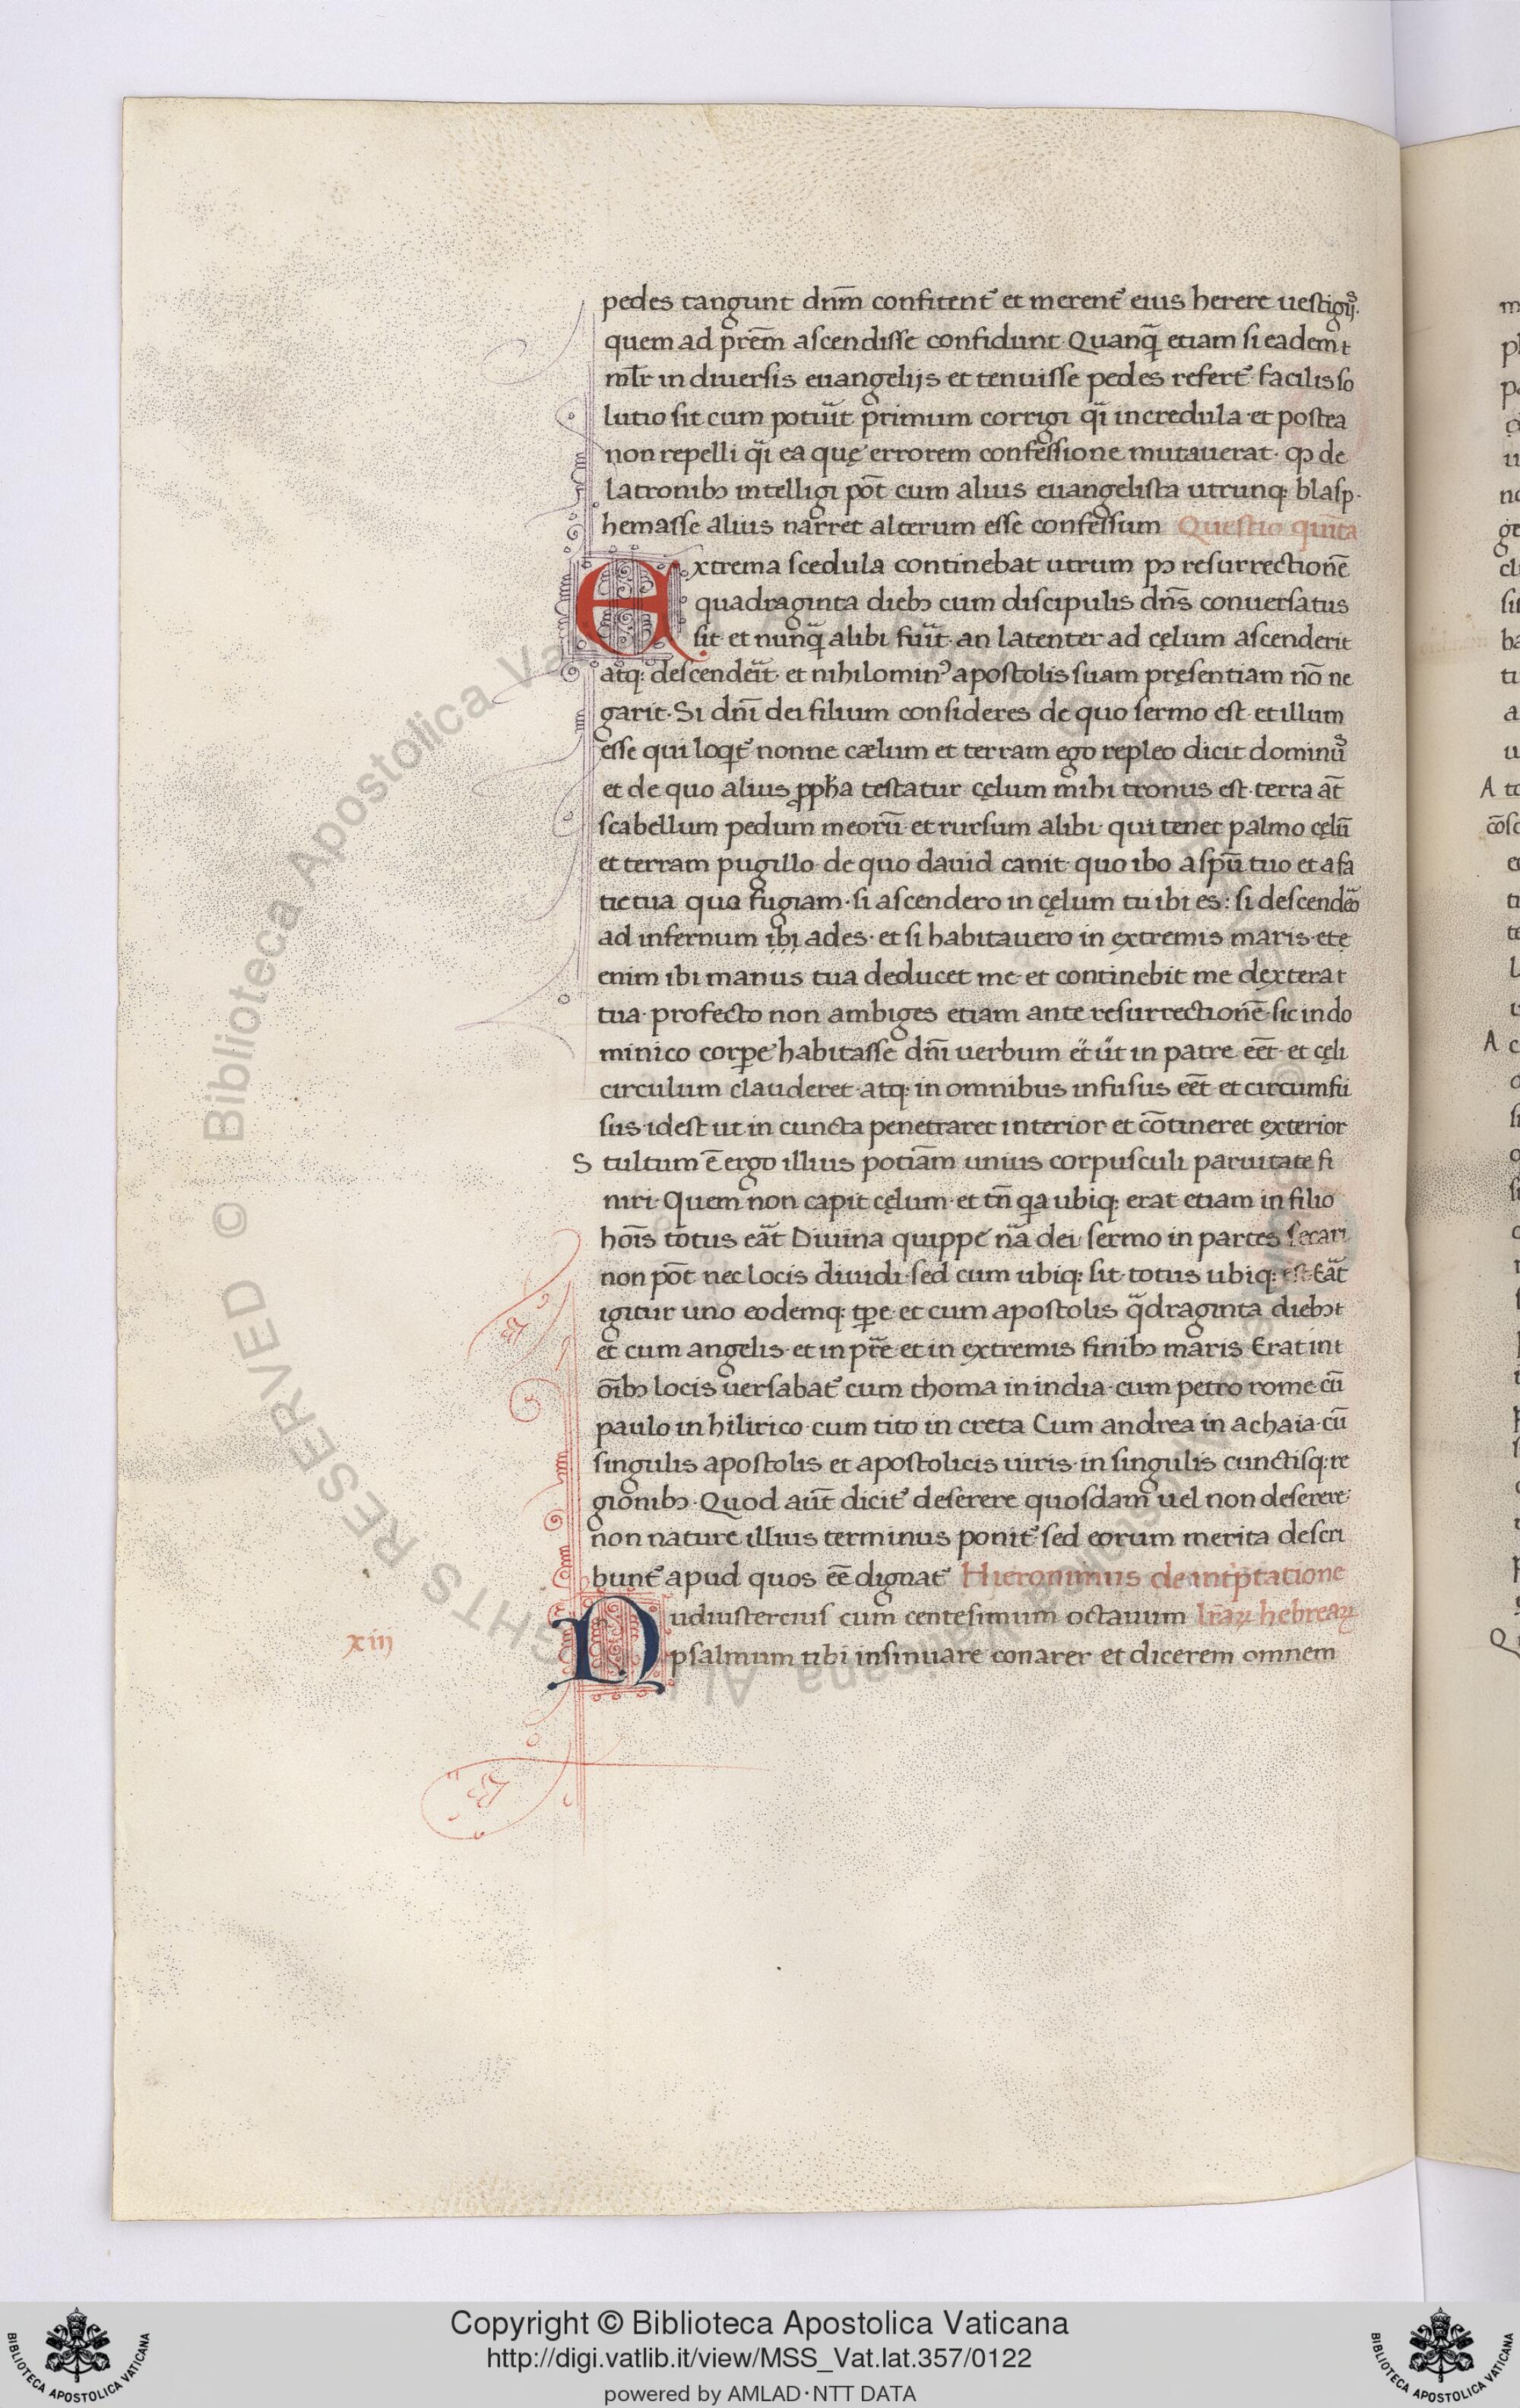 pedes tangunt dnm̄ confitent᷑ et merent᷑ eius herere uestigijˢ.
quem ad prēm ascendisse confidunt Quanq̄ etiam si eadem t
mlr̄ in diuersis euangelijs et tenuisse pedes refert᷑ facilis so
lutio sit cum potuit primum corrigi qi incredula et postea
non repelli qi ea quę errorem confessione mutauerat· qꝫ de
latronibꝫ intelligi pōt cum alius euangelista utrunqꝫ blasp·
hemasse alius narret alterum esse confessum Questio quinta
Extrema scedula continebat utrum pꝰ resurrectionē
quadraginta diebꝫ cum discipulis dn̄s conuersatus
sit et nunq̄ alibi fuit· an latenter ad cęlum ascenderit
atqꝫ descenderit· et nihilominꝰ apostolis suam pręsentiam nō ne
garit· Si dn̄i dei filium consideres de quo sermo est· et illum
esse qui loqt᷑ nonne cælum et terram ego repleo dicit dominuˢ
et de quo alius ꝓpha testatur cęlum mihi tronus est· terra āt
scabellum pedum meorū et rursum alibi· qui tenet palmo cęlū
et terram pugillo· de quo dauid canit quo ibo a spū tuo et a fa
cie tua quo fugiam· si ascendero in cęlum tu ibi es: si descendero
ad infernum ibi ades· et si habitauero in extremis maris· ete
enim ibi manus tua deducet me· et continebit me dextera t
tua· profecto non ambiges etiam ante resurrectionē sic in do
minico corpe habitasse dn̄i uerbum et ut in patre eēt· et cęli
circulum clauderet atqꝫ in omnibus infusus eēt et circumfu
sus· idest ut in cuncta penetraret interior et cōtineret exterior
Stultum ē ergo illius potiām unius corpusculi paruitate fi
niri· Quem non capit cęlum· et tn̄ qa ubiqꝫ erat etiam in filio
hoīs totus erat Diuina quippe na dei sermo in partes secari
non pōt nec locis diuidi· sed cum ubiqꝫ sit totus ubiqꝫ est· Erat
igitur uno eodemqꝫ tpe et cum apostolis qdraginta diebꝫ t
et cum angelis· et in prē et in extremis finibꝫ maris Erat in t
oībꝫ locis uersabat᷑ cum thoma in india· cum petro rome cū
paulo in hilirico· cum tito in creta Cum andrea in achaia· cū
singulis apostolis et apostolicis uiris· in singulis cunctisqꝫ re
gionibꝫ· Quod aūt dicit᷑ deserere quosdam uel non deserere·
non nature illius terminus ponit᷑ sed eorum merita descri
bunt᷑ apud quos eē dignat᷑ Hieronimus de int̄ptatione
Nudiustercius cum centesimum octauum lr̄aꝝ hebreaꝝ
xiij
psalmum tibi insinuare conarer et dicerem omnem
Copyright © Biblioteca Apostolica Vaticana
http://digi.vatlib.it/view/MSS_Vat.lat.357/0122
powered by AMLAD·NTT DATA
BIBLIOTECA APOSTOLICA VATICANA
BIBLIOTECA APOSTOLICA VATICANA